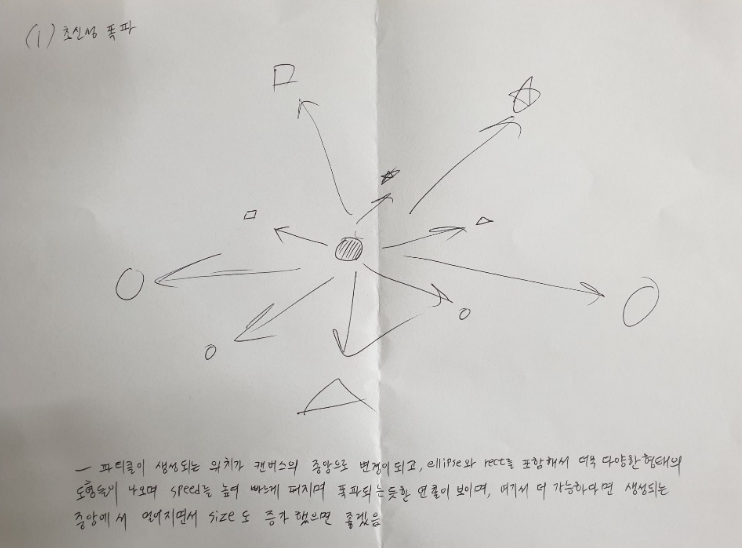 (1) 초신성 폭파
- 파티클이 생성되는 위치가 캔버스의 중앙으로 변경이되고, ellipse와 rect를 포함해서 더욱 다양한 형태의
도형들이 나오며 speed를 높여 빠르게 퍼지며 폭파되는듯한 연출이 보이며, 여기서 더 가능하다면 생성되는
중앙에서 멀어지면서 size도 증가 했으면 좋겠음